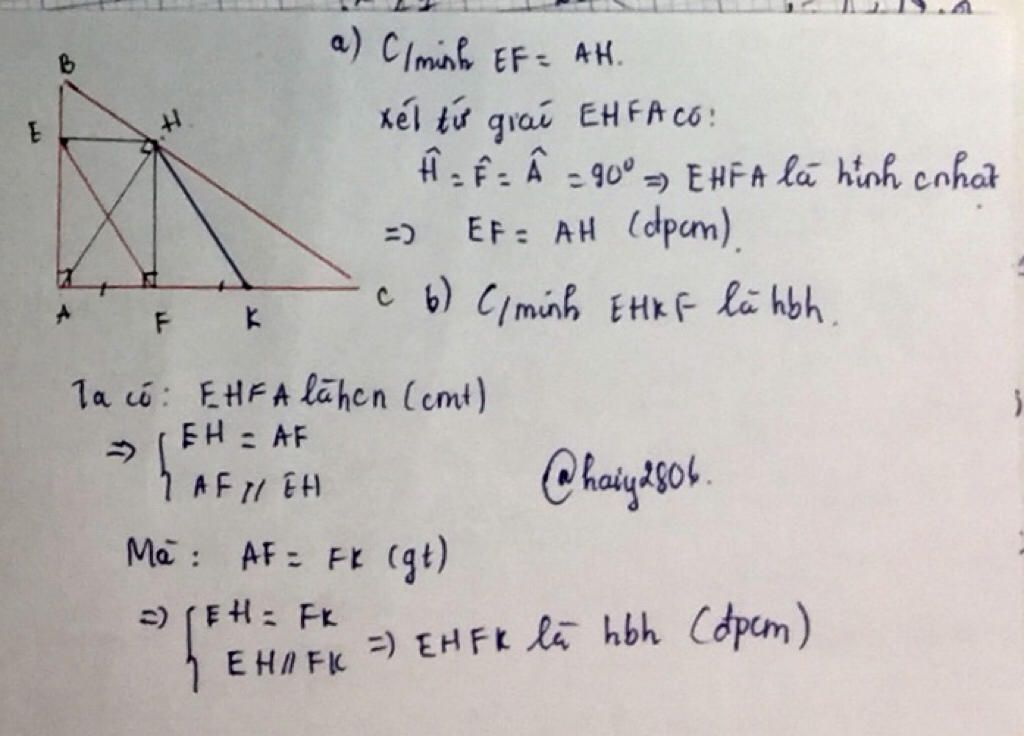 a) C/minh EF = AH.
B
E
H
A
F
K
C
xét tứ giác EHFA có:
Ĥ = F̂ = Â = 90° => EHFA là hình cnhat
=> EF = AH (đpcm).
b) C/minh EHKF là hbh.
Ta có: EHFA là hcn (cmt)
=> { EH = AF
AF // EH
@haiy2806.
Mà: AF = FK (gt)
=> { EH = FK
EH // FK => EHFK là hbh (đpcm)